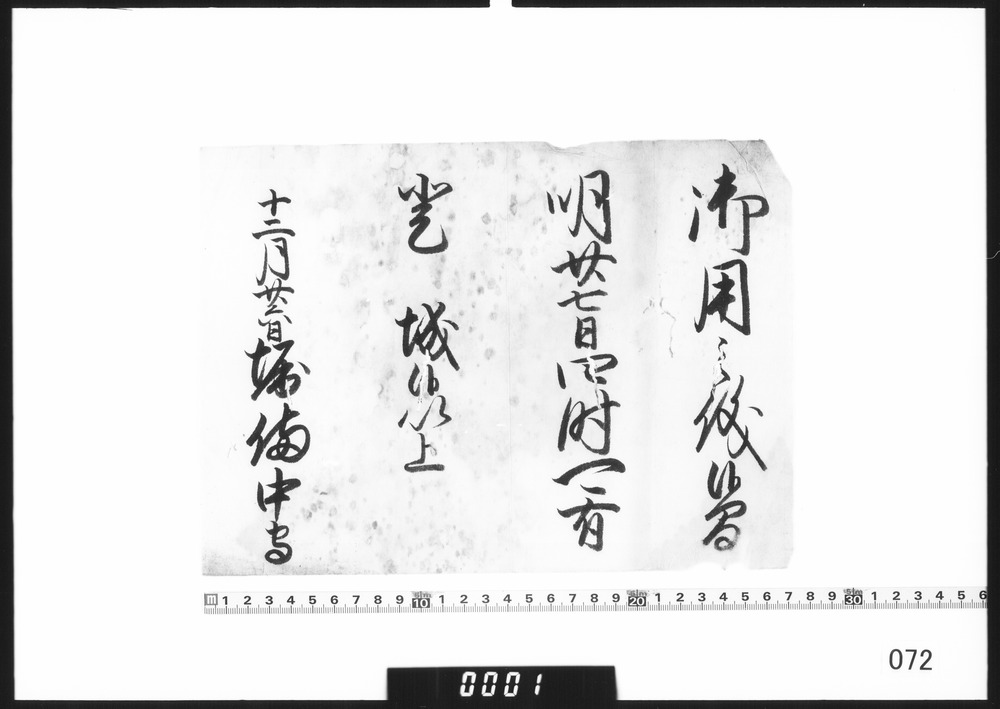 御用之儀候間
明廿七日四時可有
登 城候以上
十二月廿六日 堀備中守
m 1 2 3 4 5 6 7 8 9 10 1 2 3 4 5 6 7 8 9 20 1 2 3 4 5 6 7 8 9 30 1 2 3 4 5 6
072
0001